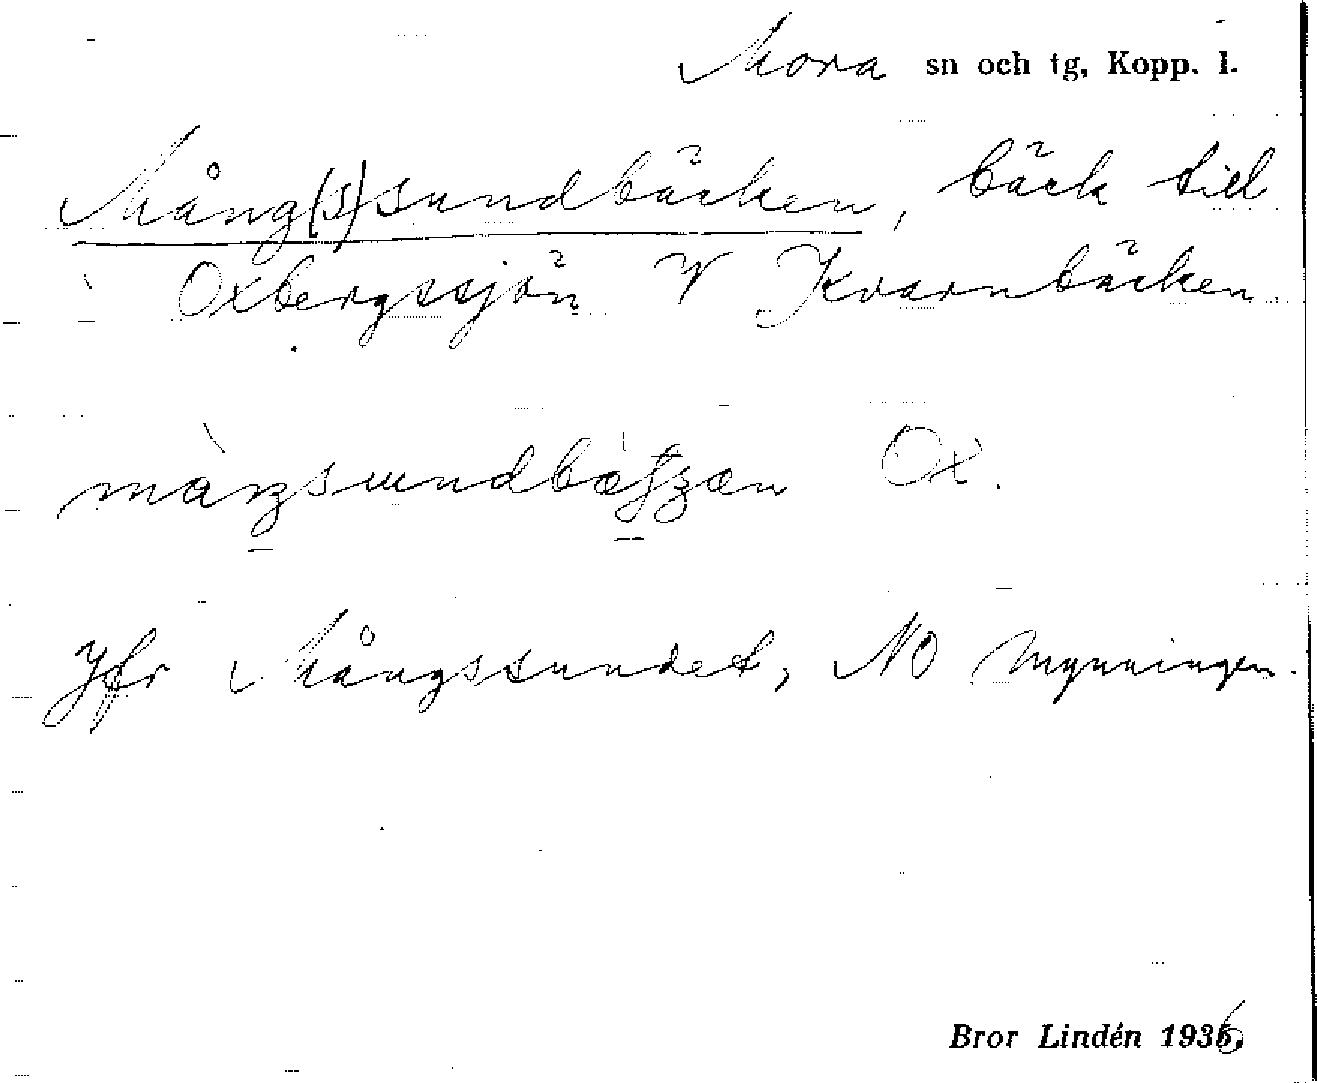 Mora sn och tg, Kopp. l.
Mång(s)sundbäcken, bäck till
Oxbergssjön V Kvarnbäcken
Ox.
Jfr Mångssundet, NO mynningen.
Bror Lindén 1936.